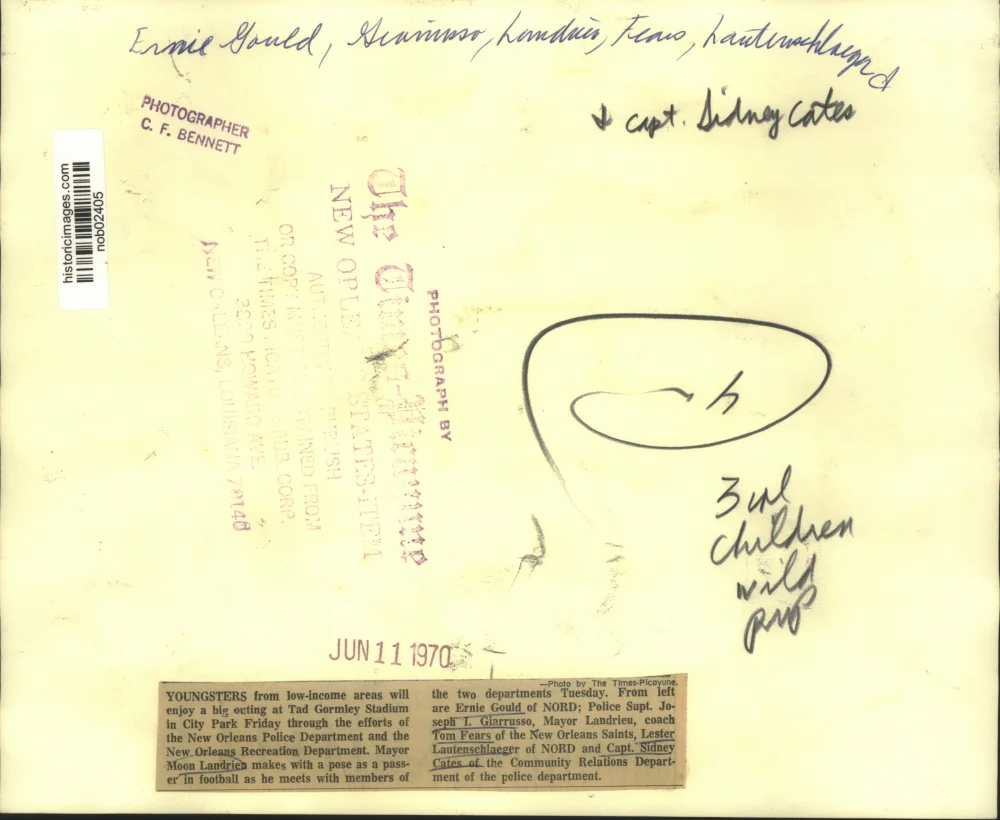 Ernie Gould, Giarrusso, Landrieu, Fears, Lautenschlaeger
& capt. Sidney Cates
PHOTOGRAPHER
C. F. BENNETT
historicimages.com
nob02405
PHOTOGRAPH BY
The Times-Picayune
NEW ORLEANS STATES-ITEM
OR COPY
THE TIMES PUB. CORP.
3800 HOWARD AVE.
NEW ORLEANS, LOUISIANA 70140
3 col
children
wild
prep
JUN 11 1970
YOUNGSTERS from low-income areas will
enjoy a big outing at Tad Gormley Stadium
in City Park Friday through the efforts of
the New Orleans Police Department and the
New Orleans Recreation Department. Mayor
Moon Landrieu makes with a pose as a pass-
er in football as he meets with members of
—Photo by The Times-Picayune.
the two departments Tuesday. From left
are Ernie Gould of NORD; Police Supt. Jo-
seph I. Giarrusso, Mayor Landrieu, coach
Tom Fears of the New Orleans Saints, Lester
Lautenschlaeger of NORD and Capt. Sidney
Cates of the Community Relations Depart-
ment of the police department.